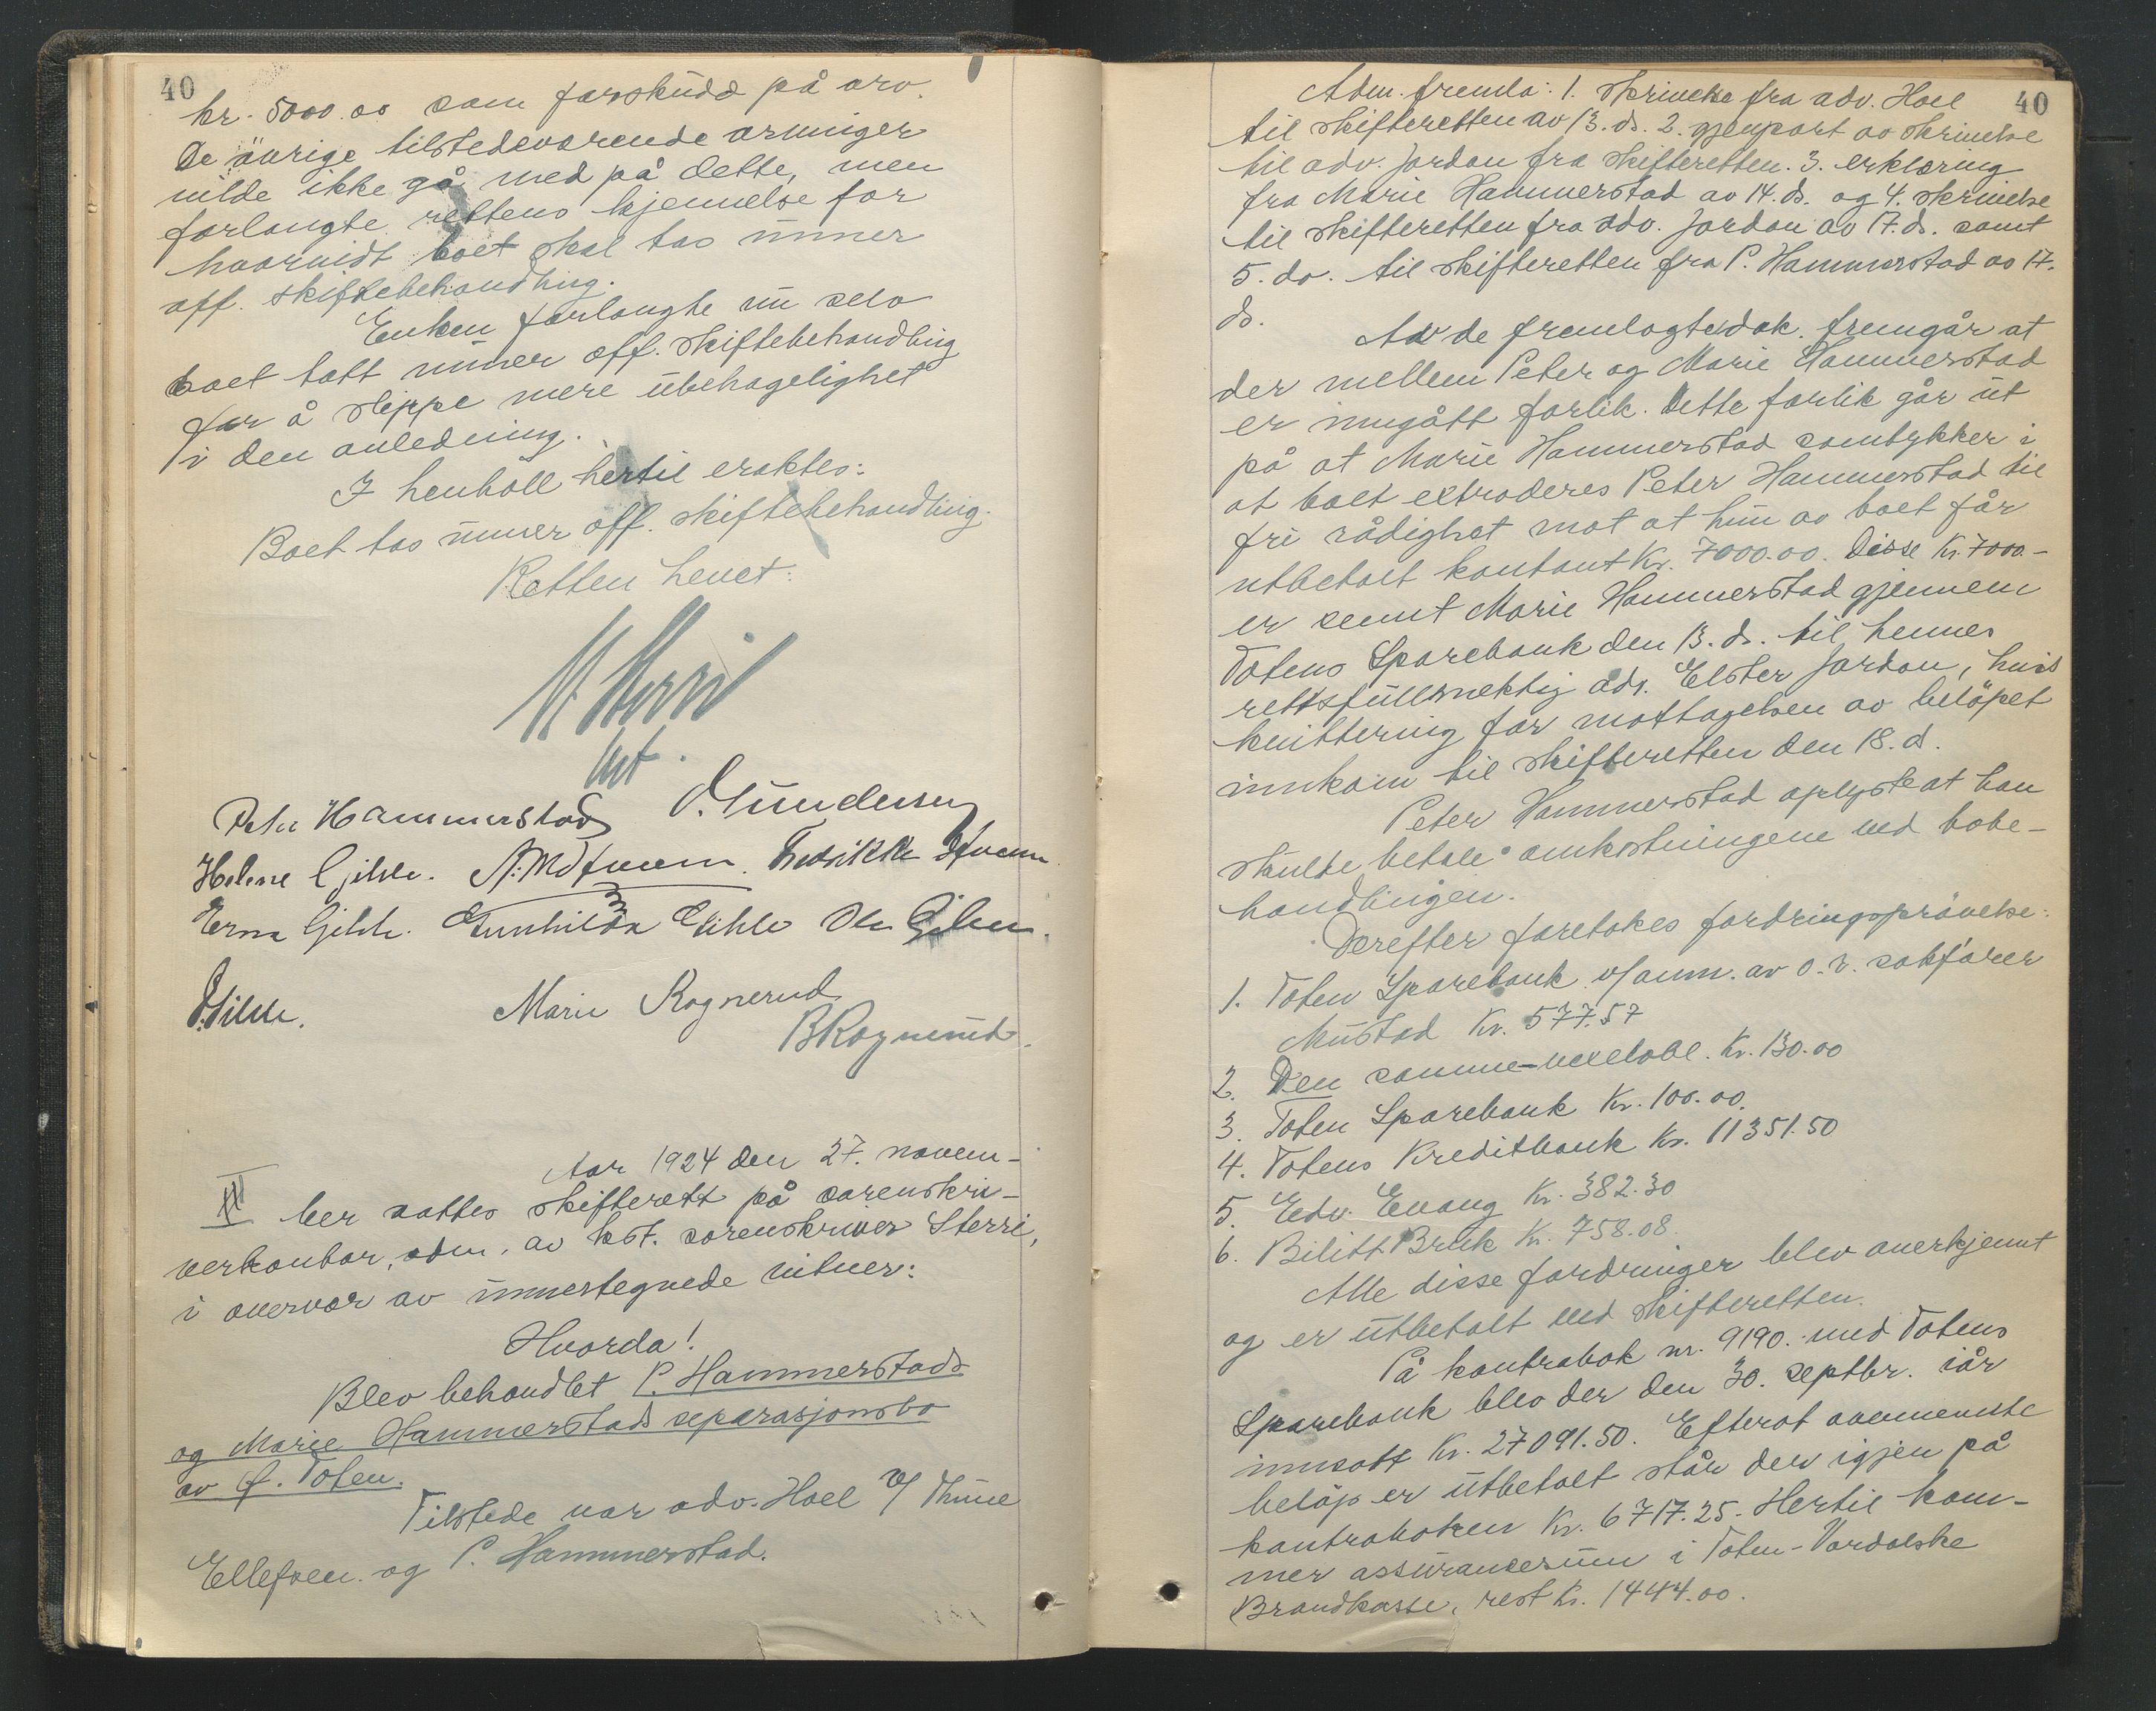 40
kr. 5000.00 som forskudd på arv.
De övrige tilstedeværende arvinger
vilde ikke gå med på dette, men
forlangte rettens kjennelse for
hvorvidt boet skal tas unner
off. skiftebehandling.
Enken forlangte nu selv
boet tatt unner off. skiftebehandling
for å slippe mere ubehagelighet
i den anledning.
I henhold hertil eraktes:
Boet tas unner off. skiftebehandling.
Retten hevet:
Sterri
kst.
Peter Hammerstad O. Gundersen
Helene Gihle. Fredrikke
Erna Gihle. Gunhilda Gihle Ole Gihle.
Gihle. Marie Rognerud
B Rognerud.
Aar 1924 den 27. novem-
III ber sattes skifterett på sorenskri-
verkontor, adm. av kst. sorenskriver Sterri,
i overvær av unnertegnede vitner:
Hvorda!
Blev behandlet P. Hammerstads
og Marie Hammerstads separasjonsbo
av Ø. Toten.
Tilstede var adv. Hoel v/ Thune
Ellefsen og P. Hammerstad.
40
Adm. fremla: 1. Skrivelse fra adv. Hoel
til skifteretten av 13. ds. 2. gjenpart av skrivelse
til adv. Jordan fra skifteretten. 3. erklæring
fra Marie Hammerstad av 14. ds. og 4. skrivelse
til skifteretten fra adv. Jordan av 17. ds. samt
5. do. til skifteretten fra P. Hammerstad av 17.
ds.
Av de fremlagte dok. fremgår at
der mellem Peter og Marie Hammerstad
er inngått forlik. Dette forlik går ut
på at Marie Hammerstad samtykker i
at boet extraderes Peter Hammerstad til
fri rådighet mot at hun av boet får
utbetalt kontant Kr. 7000.00. Disse Kr. 7000.-
er sennt Marie Hammerstad gjennem
Totens Sparebank den 13. ds. til hennes
rettsfullmektig adv. Elster Jordan, hvis
kvittering for mottagelsen av belöpet
innkom til skifteretten den 18. d.
Peter Hammerstad oplyste at han
skulde betale omkostningene ved bobe-
handlingen.
Derefter foretokes fordringsprövelse:
1. Toten Sparebank v/anm. av o.r. sakförer
Mustad Kr. 577.57
2. Den samme - vexelobl. Kr. 130.00
3. Toten Sparebank Kr. 100.00.
4. Totens Kreditbank Kr. 11351.50
5. Edv. Evang Kr. 382.30
6. Bilitt Bruk Kr. 758.08
Alle disse fordringer blev anerkjennt
og er utbetalt ved skifteretten.
På kontrabok nr. 9190. med Totens
Sparebank blev der den 30. septbr. iår
innsatt Kr. 27091.50. Efterat ovennevnte
belöp er utbetalt står der igjen på
kontraboken Kr. 6717.25. Hertil kom-
mer assuransesum i Toten-Vardalske
Brandkasse, rest Kr. 1444.00.